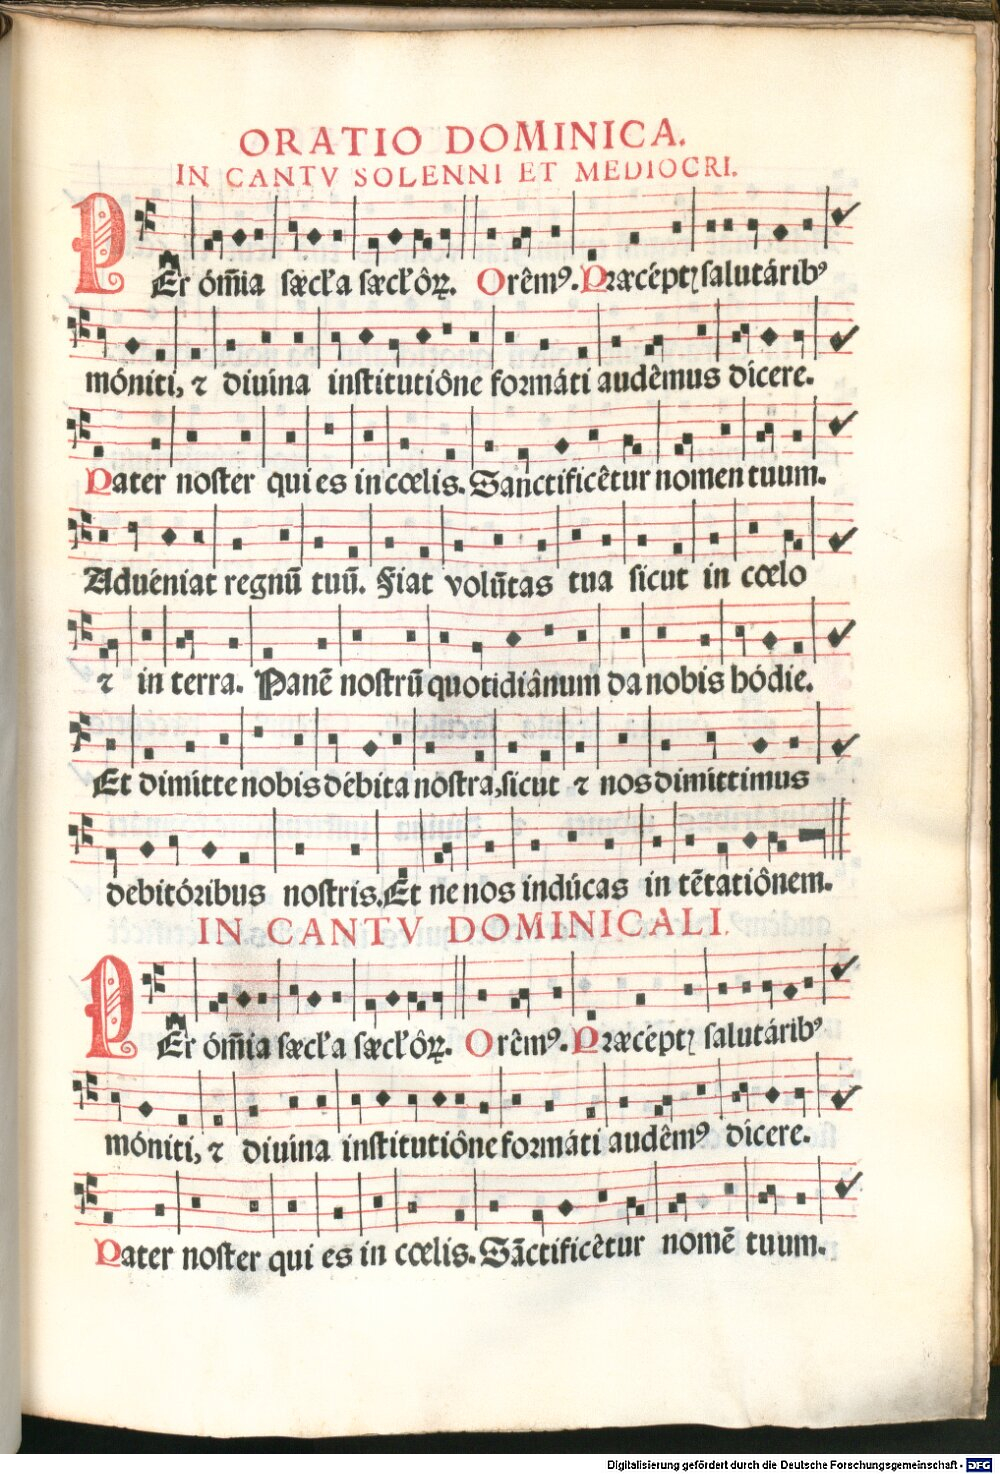 ORATIO DOMINICA.
IN CANTV SOLENNI ET MEDIOCRI.
PEr óm̃ia sæcl'a sæcl'ôꝝ. Orêmꝰ. Præcéptꝭ salutáribꝰ
móniti, ⁊ diuina institutiône formáti audêmus dícere.
Pater noster qui es in cœlis. Sanctificêtur nomen tuum.
Aduéniat regnũ tuũ. Fiat volũtas tua sicut in cœlo
⁊ in terra. Panẽ nostrũ quotidiânum da nobis hódie.
Et dimitte nobis débita nostra, sicut ⁊ nos dimittimus
debitóribus nostris. Et ne nos indúcas in tẽtatiônem.
IN CANTV DOMINICALI.
PEr óm̃ia sæcl'a sæcl'ôꝝ. Orêmꝰ. Præcéptꝭ salutáribꝰ
móniti, ⁊ diuina institutiône formáti audêmꝰ dícere.
Pater noster qui es in cœlis. Sãctificêtur nomẽ tuum.
Digitalisierung gefördert durch die Deutsche Forschungsgemeinschaft - DFG